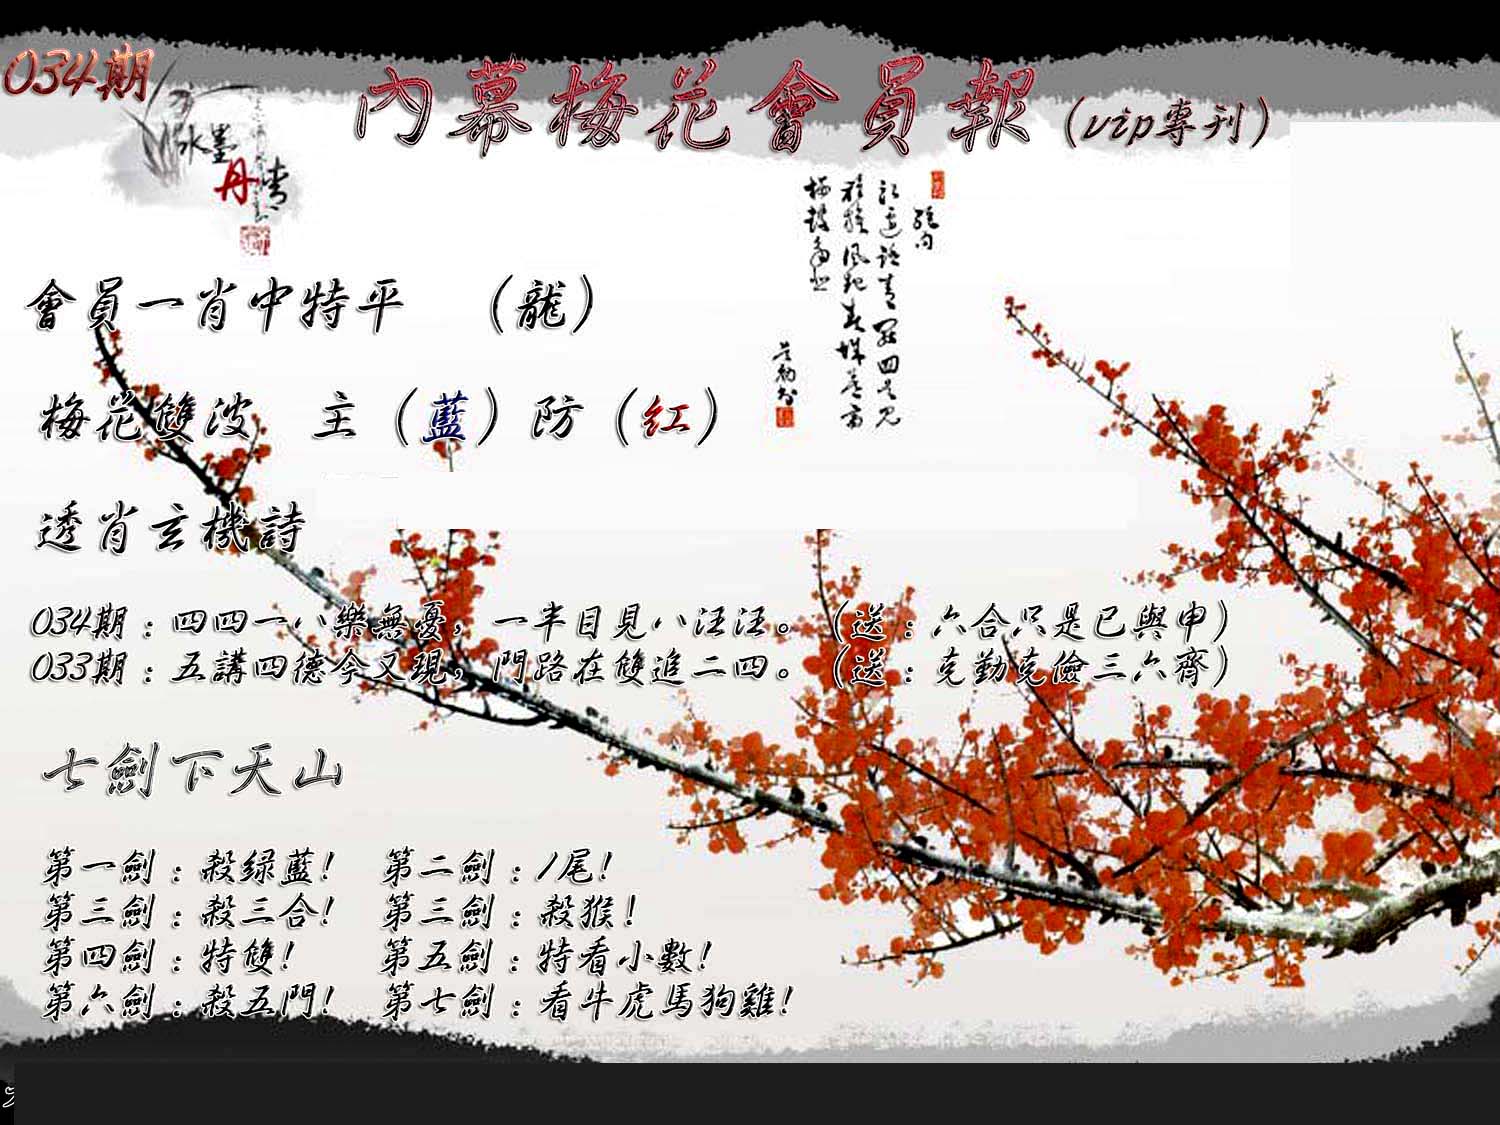 034期
內幕梅花會員報(vip專刊)
水墨
丹青
會員一肖中特平 (龍)
梅花雙波 主(藍)防(紅)
透肖玄機詩
034期:四四一八樂無憂,一半目見八汪汪。(送:六合只是已與申)
033期:五講四德今又現,門路在雙進二四。(送:克勤克儉三六齊)
七劍下天山
第一劍:殺绿藍! 第二劍:1尾!
第三劍:殺三合! 第三劍:殺猴!
第四劍:特雙! 第五劍:特看小數!
第六劍:殺五門! 第七劍:看牛虎馬狗雞!